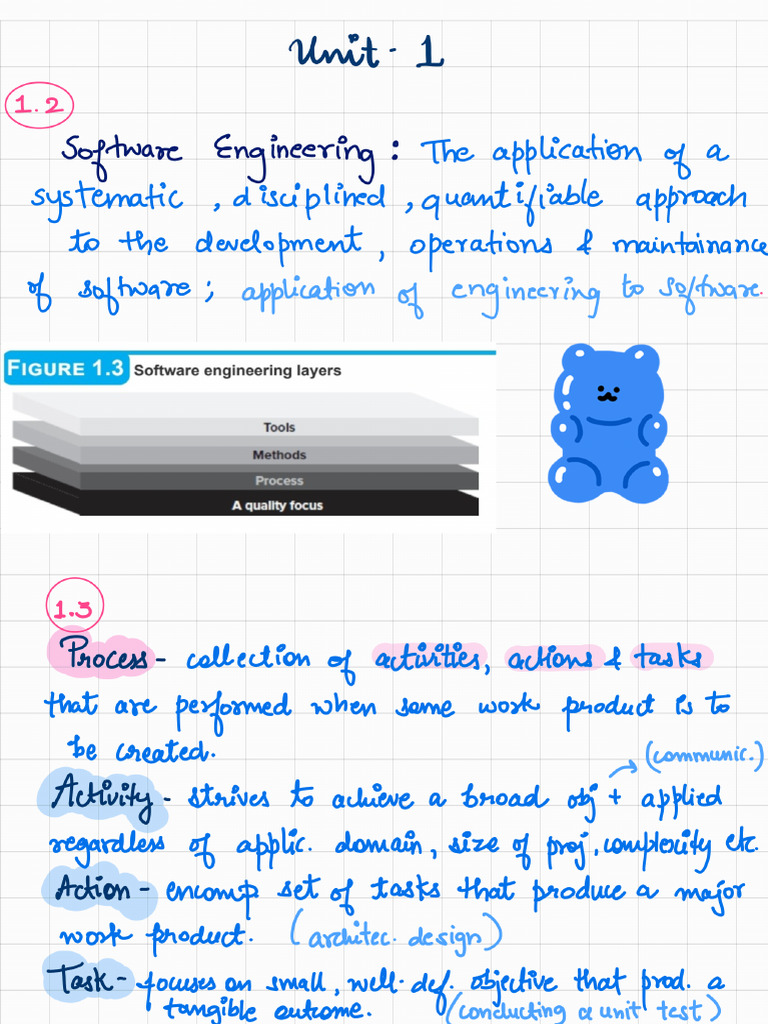 Unit - 1
1.2
Software Engineering : The application of a
systematic , disciplined , quantifiable approach
to the development, operations & maintainance
of software; application of engineering to software.
FIGURE 1.3 Software engineering layers
Tools
Methods
Process
A quality focus
1.3
Process - collection of activities, actions & tasks
that are performed when some work product is to
be created.
(communic.)
Activity - strives to achieve a broad obj + applied
regardless of applic. domain, size of proj, complexity etc.
Action - encomp set of tasks that produce a major
work product. (architec. design)
Task - focuses on small, well-def. objective that prod. a
tangible outcome. (conducting a unit test)